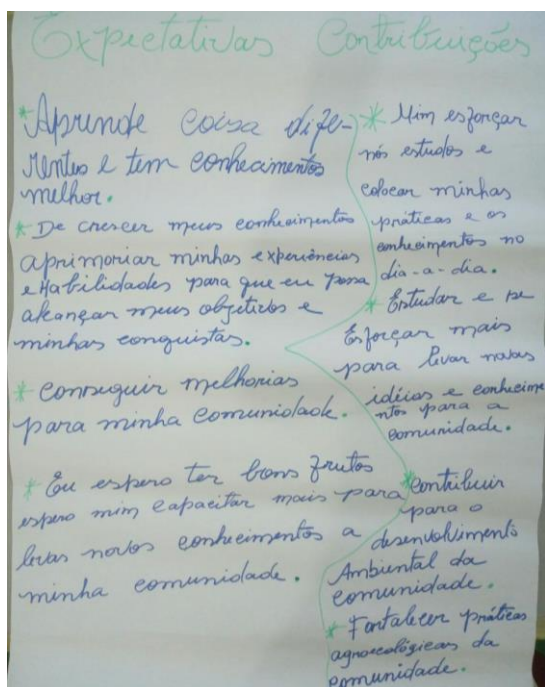 Expectativas
*Aprende coisa dife-
rentes e tem conhecimentos
melhor.
* De crescer meus conhecimentos
aprimoriar minhas experiências
e Habilidades para que eu possa
alcançar meus objetivos e
minhas conquistas.
* Conseguir melhorias
para minha comunidade.
* Eu espero ter bons frutos
espero mim capacitar mais para
levas novos conhecimentos a
minha comunidade.
Contribuições
* Mim esforçar
nós estudos e
colocar minhas
práticas e os
conhecimentos no
dia-a-dia.
* Estudar e se
Esforçar mais
para levar novas
idéias e conhecime
ntos para a
comunidade.
*Contribuir
para o
desenvolvimento
Ambiental da
comunidade.
* Fortalecer práticas
agroecológicas da
comunidade.